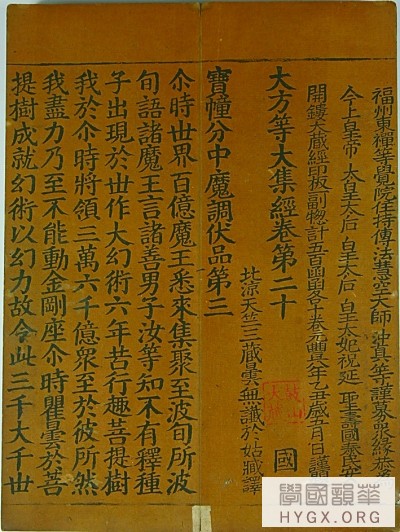 福州東禪等覺院住持傳法慧空大師沖真等謹募眾緣恭為
今上皇帝太皇太后皇太后皇太妃祝延聖壽國泰民安
開鏤大藏經印板副惣計五百函函各十卷元豐八年乙丑歲五月日謹
大方等大集經卷第二十
國
北涼天竺三藏曇無讖於姑臧譯
寶幢分中魔調伏品第三
尒時世界百億魔王悉來集聚至波旬所波
旬語諸魔王言諸善男子汝等知不有釋種
子出現於世作大幻術六年苦行趣菩提樹
我於尒時將領三萬六千億眾至於彼所然
我盡力乃至不能動金剛座尒時瞿曇於菩
提樹成就幻術以幻力故令此三千大千世
學國韻華
HYGX.ORG